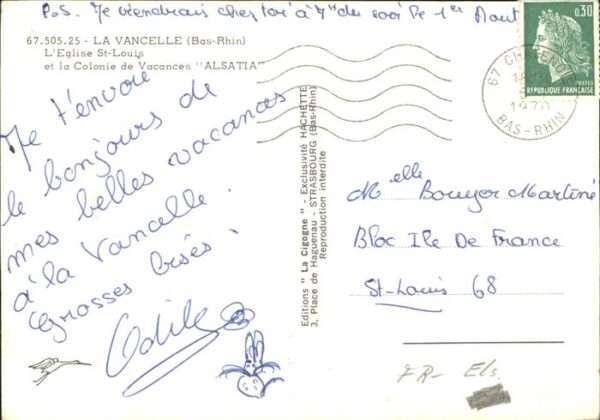 P.S. Je viendrais chez toi à 7h du soir le 1er Aout
67.505.25 - LA VANCELLE (Bas-Rhin)
L'Eglise St-Louis
et la Colonie de Vacances "ALSATIA"
Je t'envoie
le bonjours de
mes belles vacances
à la Vancelle.
Grosses bises!
Odile
Editions "La Cigogne" - Exclusivité HACHETTE
3, Place de Haguenau - STRASBOURG (Bas-Rhin)
Reproduction interdite
0,30
POSTES
REPUBLIQUE FRANÇAISE
67
1970
BAS-RHIN
Melle Bouyer Martine
Bloc Ile De France
St-Louis 68
FR- Els.